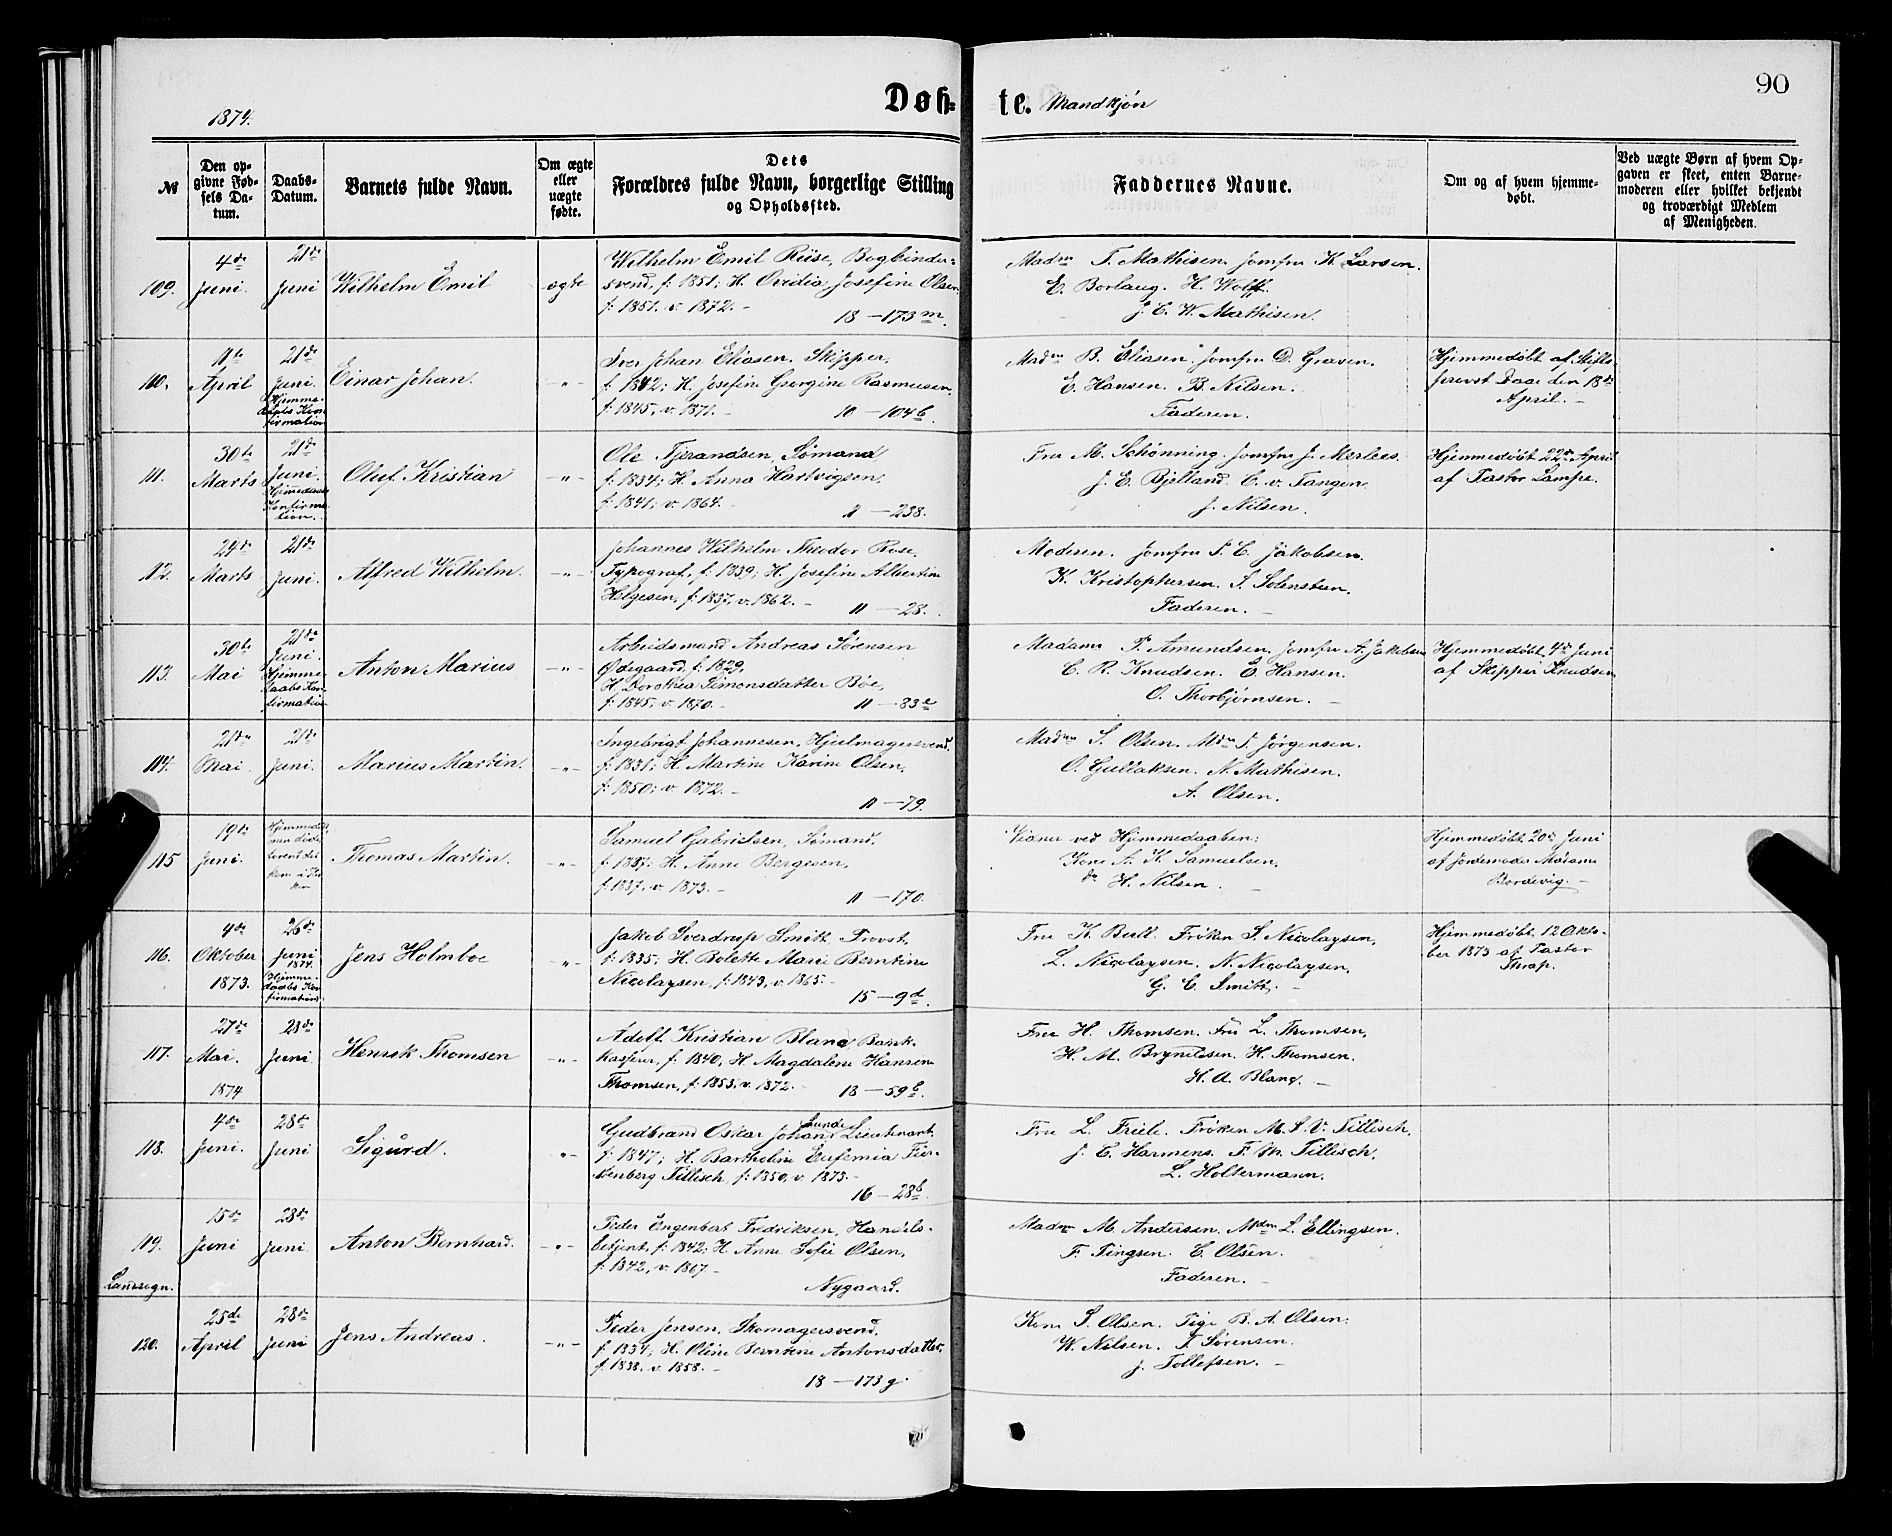 90
1874.
Døb=
te. Mandkjøn
№
Den op-
givne Fød-
sels Da-
tum.
Daabs-
Datum.
Barnets fulde Navn.
Om ægte
eller
uægte
fødte.
Dets
Forældres fulde Navn, borgerlige Stilling
og Opholdssted.
Faddernes Navne.
Om og af hvem hjemme-
døbt.
Ved uægte Børn af hvem Op-
gaven er skeet, enten Barne-
moderen eller hvilket bekjendt
og troværdigt Medlem
af Menigheden.
109.
4de
Juni
21de
Juni
Wilhelm Emil
ægte
Wilhelm Emil Riise, Bogbinder-
svend, f: 1851; H. Ovidia Josefine Olsen
f: 1851. v. 1872. -
18 - 173m.
Madm T. Mathisen. Jomfru K. Larsen.
E. Borlaug. H. Wolff.
J. C. W. Mathisen.
110.
11te
April
21de
Juni.
Hjemme-
daabs Kon-
firmation
Einar Johan.
- " -
Iver Johan Eliasen. Skipper,
f: 1842; H. Josefine Georgine Rasmussen,
f: 1845, v. 1871. -
10 - 104b.
Madm B. Eliasen. Jomfru D. Graven.
E. Hansen. B. Nilsen.
Faderen.
Hjemmedøbt af Stifts-
provst Daae den 18de
April. -
111.
30te
Marts
21de
Juni.
Hjemmedaabs
Konfirma-
tion.
Oluf Kristian
- " -
Ole Tjerandsen, Sømand
f: 1834; H. Anna Hartvigsen,
f: 1841; v. 1864. -
2 - 238.
Fru M. Schønning. Jomfru J. Merlees.
J. E. Bjelland. C. v. Tangen.
J. Nilsen.
Hjemmedøbt 22de April
af Pastor Lampe.
112.
24de
Marts
21de
Juni.
Alfred Wilhelm.
- " -
Johannes Wilhelm Theodor Rose,
Typograf, f: 1839; H. Josefine Albertine
Helgesen, f: 1837, v. 1862. -
11 - 28.
Moderen. Jomfru P. C. Jakobsen.
K. Kristophersen. S. Solensteen.
Faderen. -
113.
30te
Mai
21de
Juni.
Hjemme-
daabs Kon-
firmation
Anton Marius
- " -
Arbeidsmand Andreas Sørensen
Ødegaard, f: 1829,
H. Dorothea Simonsdatter Bøe,
f: 1845, v. 1870. -
11 - 33e
Madam P. Amundsen. Jomfru A. Jakobsen
C. R. Knudsen. E. Hansen.
O. Thorbjørnsen. -
Hjemmedøbt 4de Juni
af Skipper Knudsen
114.
21de
Mai
21de
Juni.
Marius Martin.
- " -
Ingebrigt Johannesen, Hjulmagersvend.
f: 1831; H. Martine Karine Olsen,
f: 1850; v. 1872. -
11 - 79.
Madm S. Olsen. Mdm S. Jørgensen.
O. Gullaksen. N. Mathisen.
A. Olsen.
115
19de
Juni.
Thomas Martin.
- " -
Samuel Gabrielsen, Sømand.
f: 1837; H. Anne Bergesen,
f: 1837, v. 1873. -
11 - 170.
Vidner ved Hjemmedaaben:
Kone A. K. Samuelsen,
do H. Nilsen. -
Hjemmedøbt 20de Juni
af Jordemoder Madame
Bordevig. -
116.
4de
Oktober
1873.
26de
Juni
1874.
Hjemme-
daabs Kon-
firmation
Jens Holmboe
- " -
Jakob Sverdrup Smith, Provst,
f: 1835; H. Bolette Marie Berntine
Nicolaysen, f: 1843, v. 1865. -
15 - 9d.
Fru K. Bull. Frøken S. Nicolaysen,
L. Nicolaysen. N. Nicolaysen,
G. E. Smitt. -
Hjemmedøbt 12 Okto-
ber 1873 af Pastor
Thrap.
117.
27de
Mai.
1874
28de
Juni
Henrik Thomsen
- " -
Adolf Kristian Blanc Bank-
kasserer, f: 1840, H. Magdalene Hansen
Thomsen, f: 1853, v. 1872. -
18 - 59b.
Fru H. Thomsen. Fru L. Thomsen,
H. M. Brynildsen. H. Thomsen.
H. A. Blanc. -
118.
4de
Juni.
28de
Juni
Sigurd.
- " -
Gudbrand Oskar Johan Lunde Lieutnant.
f: 1847; H. Bartholine Eufemia
Tillisch, f: 1850, v. 1873. -
16 - 28b.
Fru L. Friele. Frøken M. S. V. Tillisch.
J. C. Harmens. F. M. Tillisch.
L. Holtermann.
119.
Landsogn.
15de
Juni
28de
Juni
Anton Bernhard.
- " -
Peder Engenbat Fredriksen, Handels-
betjent, f: 1842; H. Anne Sofie Olsen,
f: 1842, v. 1867. -
Nygaard.
Madm M. Andersen. Mdm L. Ellingsen.
F. Tingsen. C. Olsen.
Faderen. -
120.
25de
April
28de
Juni
Jens Andreas.
- " -
Peder Jensen, Skomagersvend,
f. 1834; H. Oline Berntine Antonsdatter,
f. 1838. v. 1858. -
18 - 173g.
Kone S. Olsen. Pige B. A. Olsen.
W. Nilsen. T. Sørensen.
J. Tollefsen. -